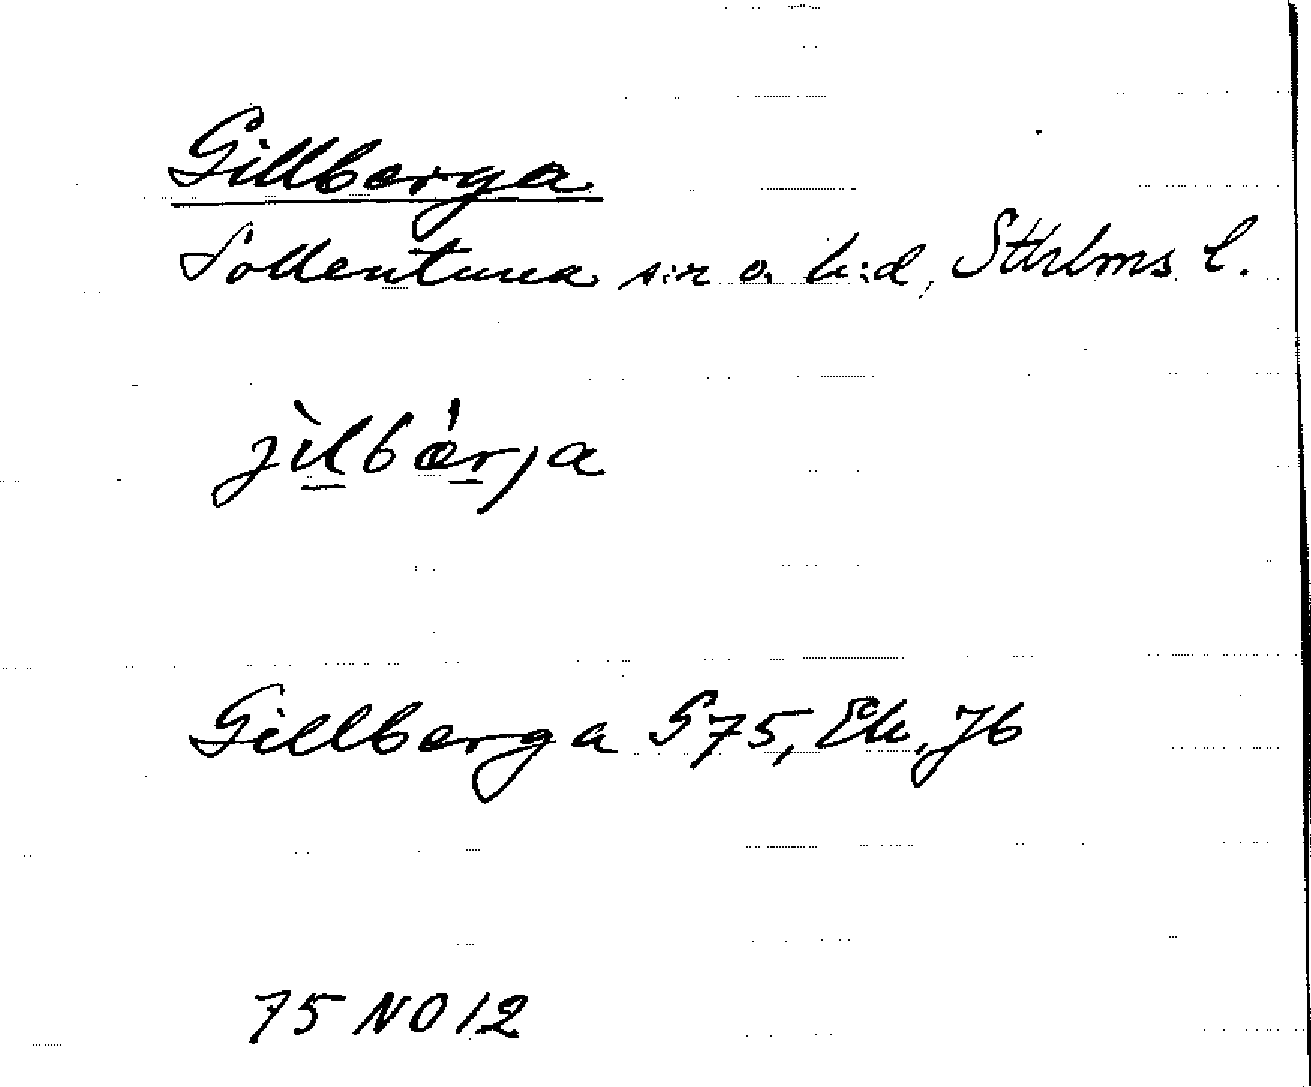 Gillberga
Sollentuna s:n o. h:d, Sthlms l.
jìlbærja
Gillberga G75, Ek, Jb
75 NO 12